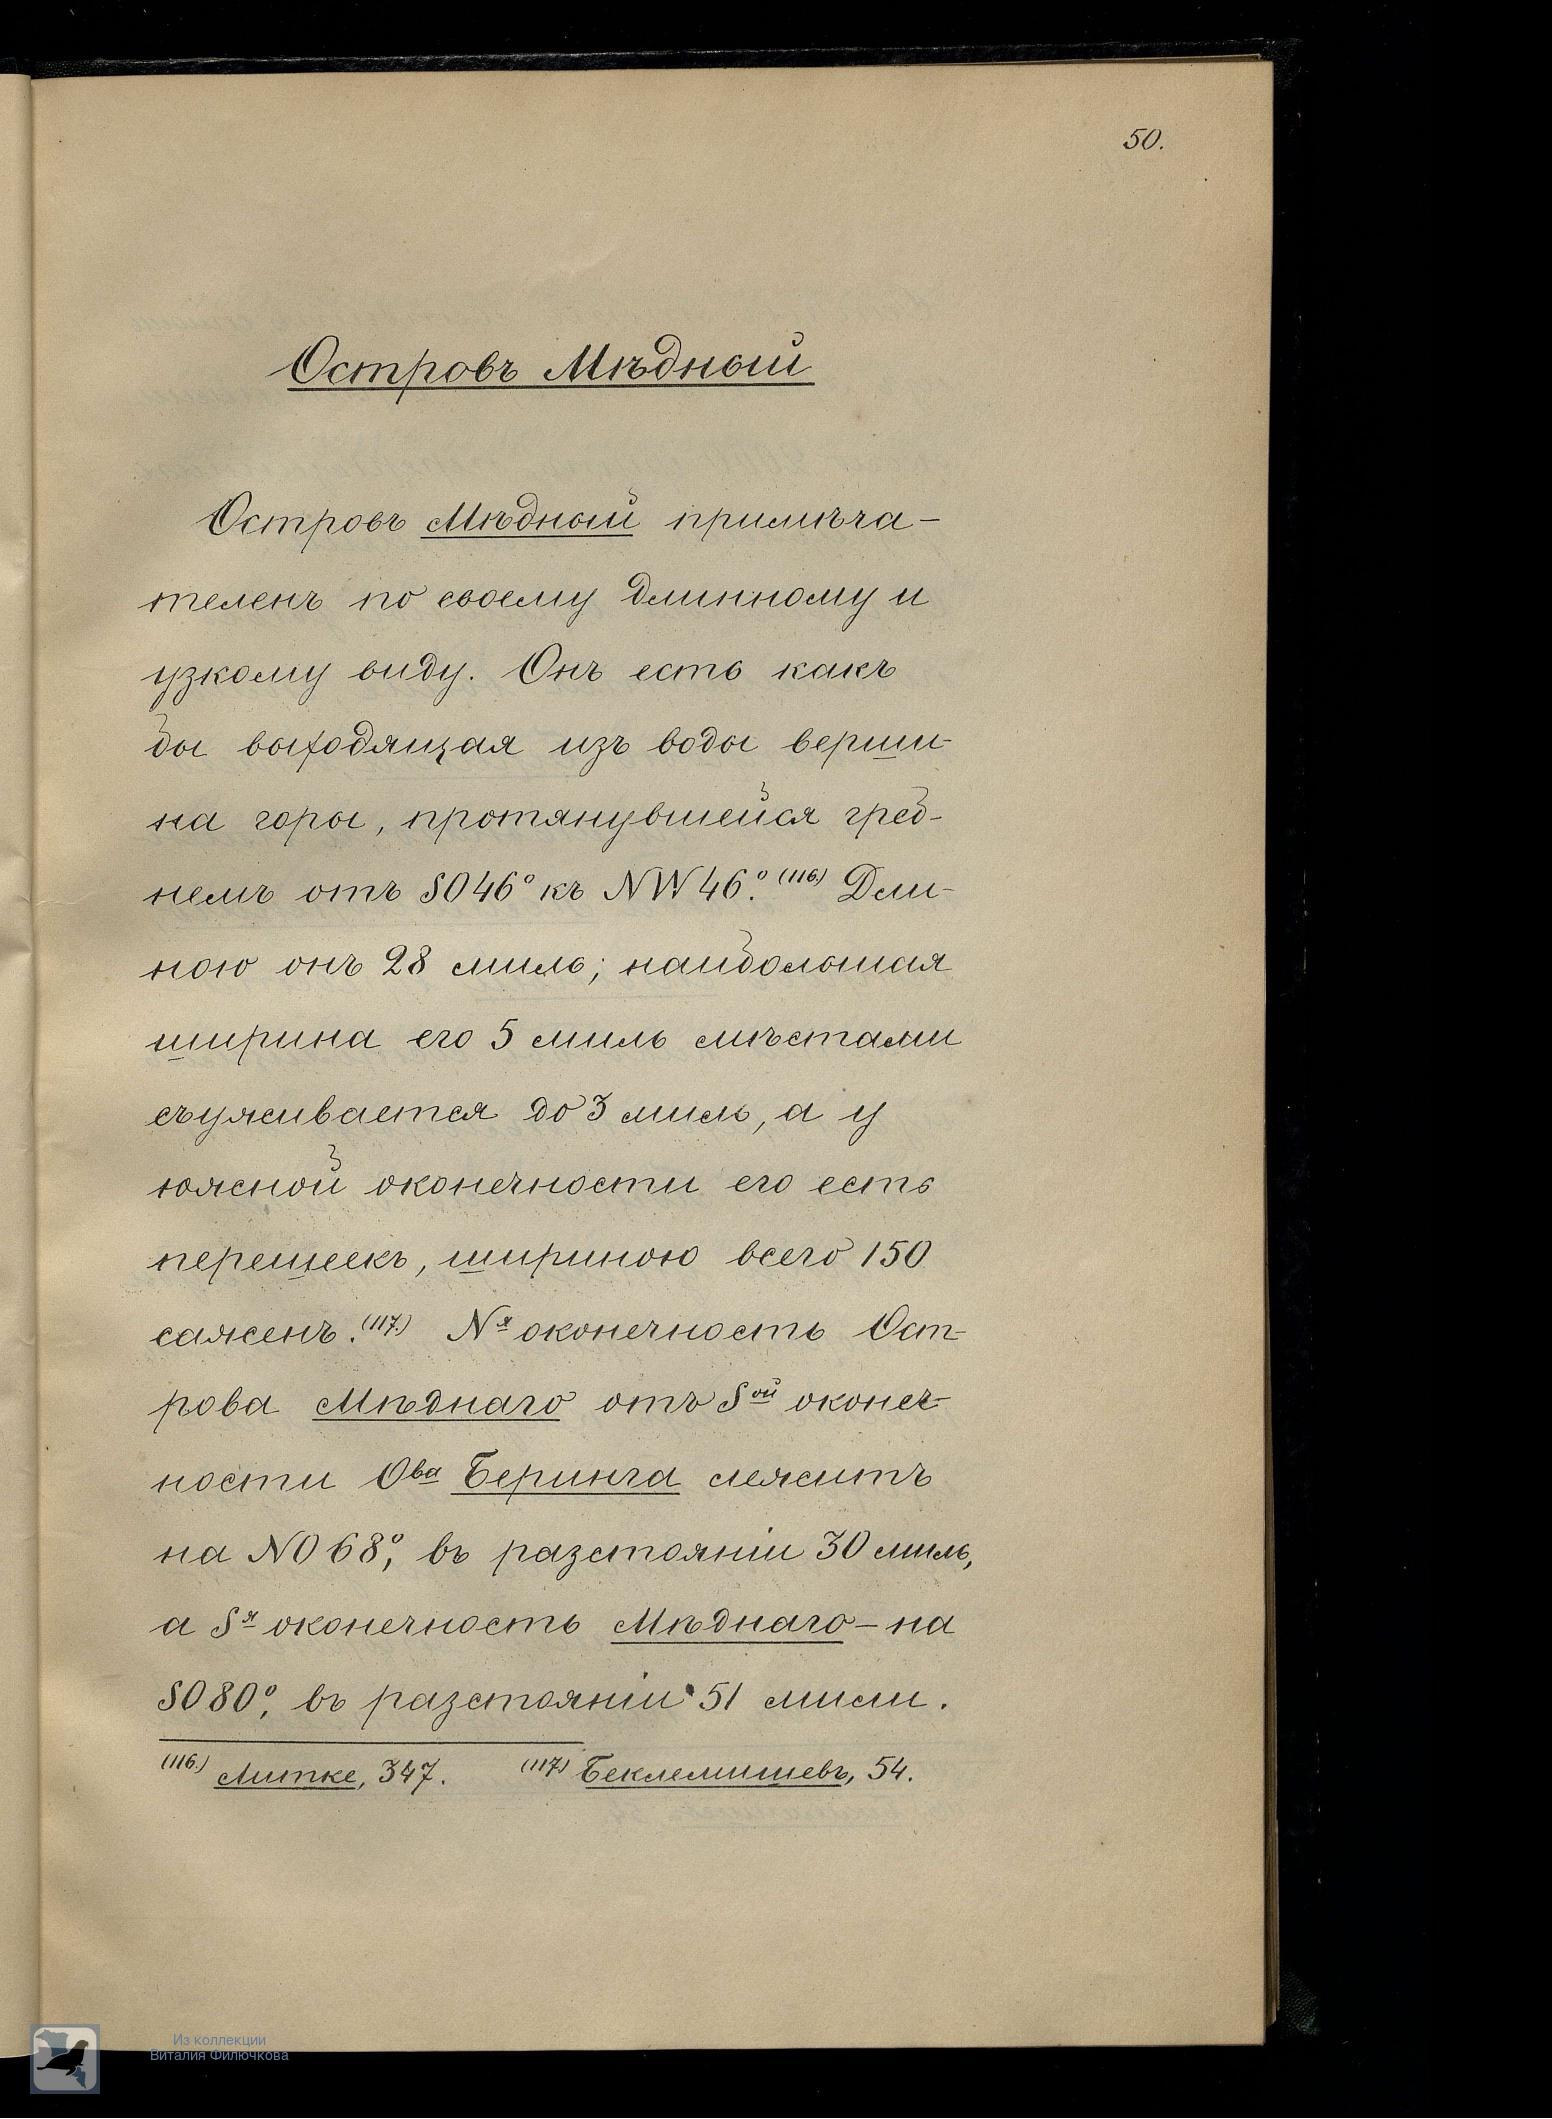 50.
Островъ Мѣдный
Островъ Мѣдный примѣча-
теленъ по своему длинному и
узкому виду. Онъ есть какъ
бы выходящая изъ воды верши-
на горы, протянувшейся греб-
немъ отъ SO 46° къ NW 46°. (116.) Дли-
ною онъ 28 миль; наибольшая
ширина его 5 миль мѣстами
съуживается до 3 миль, а у
южной оконечности его есть
перешеекъ, шириною всего 150
саженъ. (117.) Nя оконечность Ост-
рова Мѣднаго отъ Sой оконеч-
ности Ова Беринга лежитъ
на NO 68°, въ разстояніи 30 миль,
а Sя оконечность Мѣднаго — на
SO 80°, въ разстояніи 51 мили.
(116.) Литке, 347. (117.) Беклемишевъ, 54.
Из коллекции
Виталия Филючкова